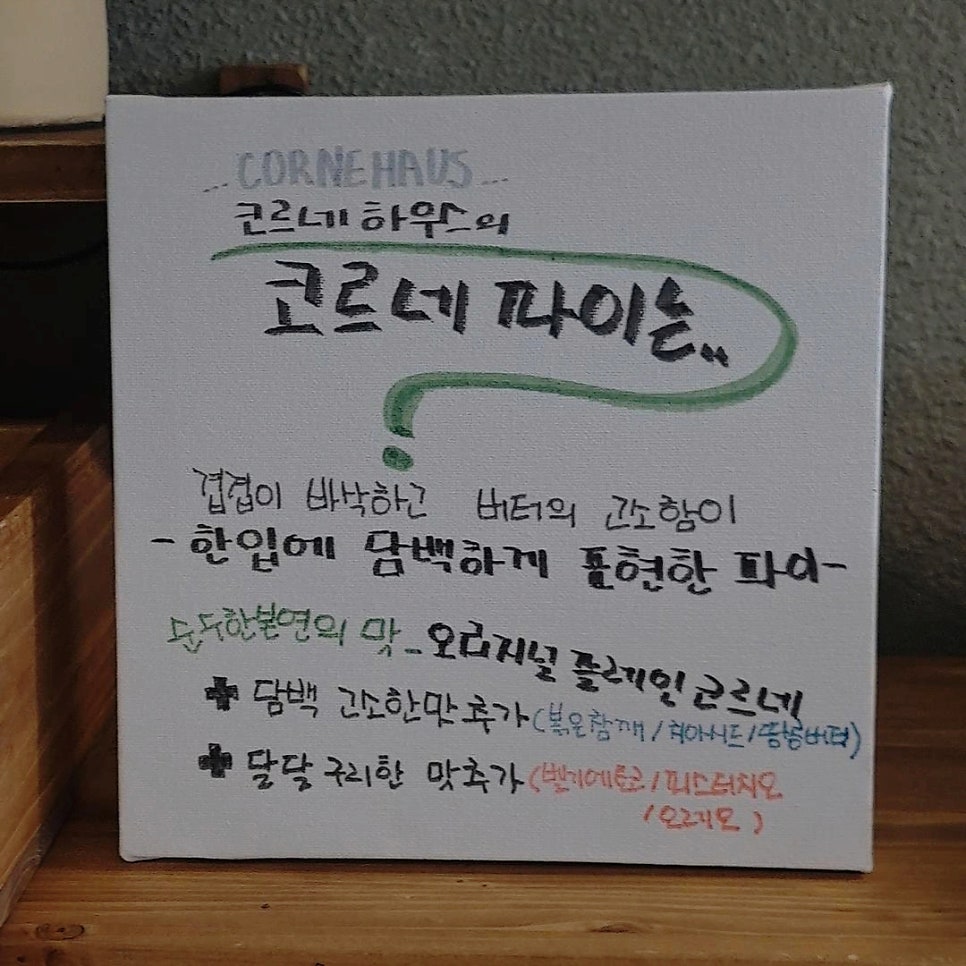 CORNEHAUS
코르네하우스의
코르네 파이는..
겹겹이 바삭하고 버터의 고소함이
- 한입에 담백하게 표현한 파이-
순수한본연의 맛_오리지널 플레인코르네
+ 담백 고소한맛추가(볶은참깨/치아시드/땅콩버터)
+ 달달구리한 맛추가(벨기에초코/피스타치오
/오레오)